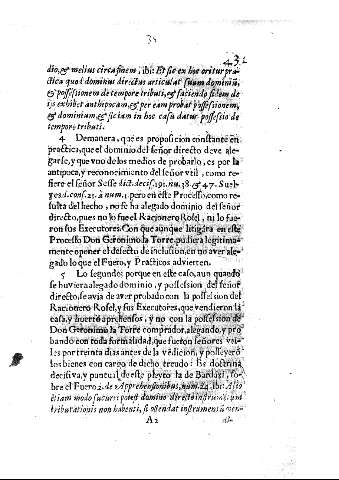 35
432
dio, & melius circa finem, ibi: Et sic ex hoc oritur pra-
ctica quod dominus directus articulat suum dominiũ,
& possessionem de tempore tributi, & faciendo fidem de
ijs exhibet anthipocam, & per eam probat possessionem,
& dominium, & sic iam in hoc casu datur possessio de
tempore tributi.
4 Demanera, que es proposicion constante en
practica, que el dominio del señor directo deve ale-
garse, y que vno de los medios de probarlo, es por la
antipuca, y reconocimiento del señor vtil, como re-
fiere el señor Sesse dict. decis. 191. nu. 38. & 47. Suel-
ves d. cons. 23. à num. , pero en este Processo, como re-
sulta del hecho, no se ha alegado dominio del señor
directo, pues no lo fue el Racionero Rosel, ni lo fue-
ron sus Executores: Con que aunque litigàra en este
Processo Don Geronimo la Torre, pudiera legitima-
mente oponer el defecto de inclusion, en no aver ale-
gado lo que el Fuero, y Practicos advierten.
5 Lo segundo; porque en este caso, aun quando
se huviera alegado dominio, y possession del señor
directo, se avia de aver probado con la possession del
Racionero Rosel, y sus Executores, que vendieron la
casa, y huerto aprehensos, y no con la possession de
Don Geronimo la Torre comprador, alegando, y pro
bando con toda formalidad, que fueron señores vti-
les por treinta dias antes de la vẽdicion, y posseyerõ
los bienes con cargo de dicho treudo: Es doctrina
decisiva, y puntual de este pleyto la de Bardaxi, so-
bre el Fuero 2. de Apprehensionibus, num. 24. ibi: Alio
etiam modo sucurri potest domino directo instrumẽtum
tributationis non habenti, si ostendat instrumentũ ven-
A2
di-